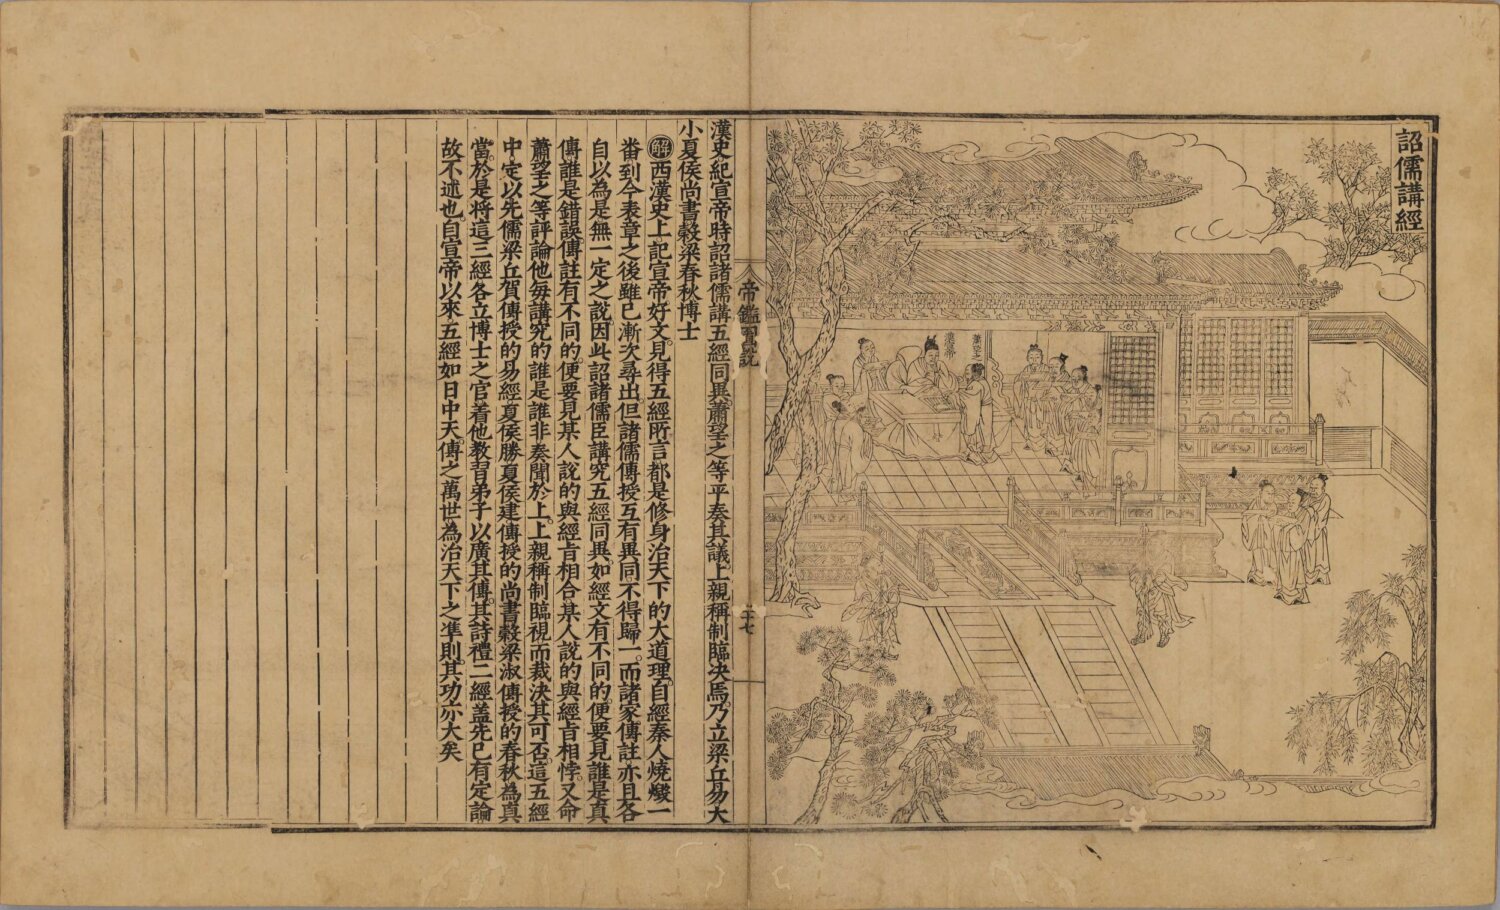 詔儒講經
漢宣帝
蕭望之
帝鑑圖說
二十七
漢史紀宣帝時詔諸儒講五經同異蕭望之等平奏其議上親稱制臨决焉乃立梁丘易大
小夏侯尚書穀梁春秋博士
解西漢史上記宣帝好文見得五經所言都是修身治天下的大道理自經秦人燒燬一
畨到今表章之後雖已漸次尋出但諸儒傳授互有異同不得歸一而諸家傳註亦且各
自以為是無一定之說因此詔諸儒臣講究五經同異如經文有不同的便要見誰是真
傳誰是錯誤傳註有不同的便要見某人說的與經旨相合某人說的與經旨相悖又命
蕭望之等評論他每講究的誰是誰非奏聞於上上親稱制臨視而裁決其可否這五經
中定以先儒梁丘賀傳授的易經夏侯勝夏侯建傳授的尚書穀梁淑傳授的春秋為真
當於是将這三經各立博士之官着他教習弟子以廣其傳其詩禮二經盖先已有定論
故不述也自宣帝以來五經如日中天傳之萬世為治天下之準則其功亦大矣